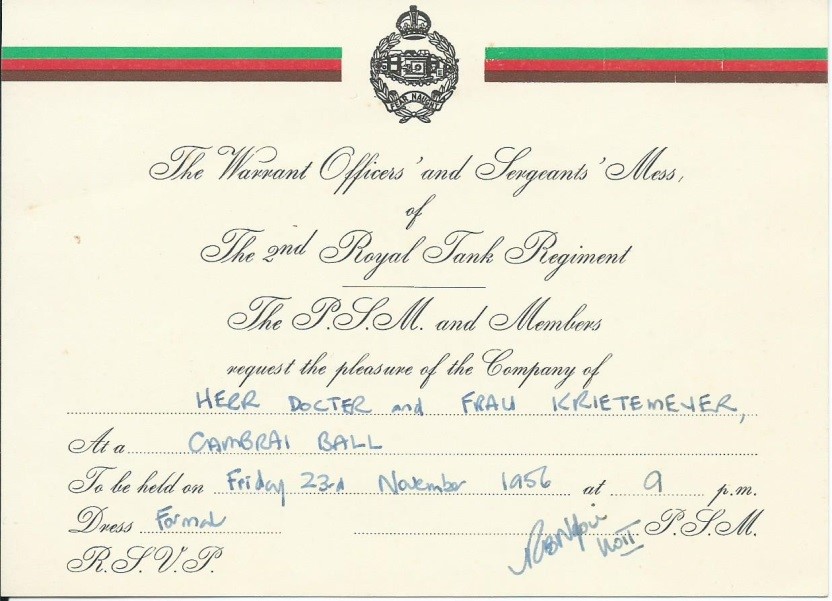 FEAR NAUGHT
The Warrant Officers' and Sergeants' Mess,
of
The 2nd Royal Tank Regiment
The P.S.M. and Members
request the pleasure of the Company of
HERR DOCTER and FRAU KRIETEMEYER,
At a CAMBRAI BALL
To be held on Friday 23rd November 1956 at 9 p.m.
Dress Formal WOII P.S.M.
R.S.V.P.